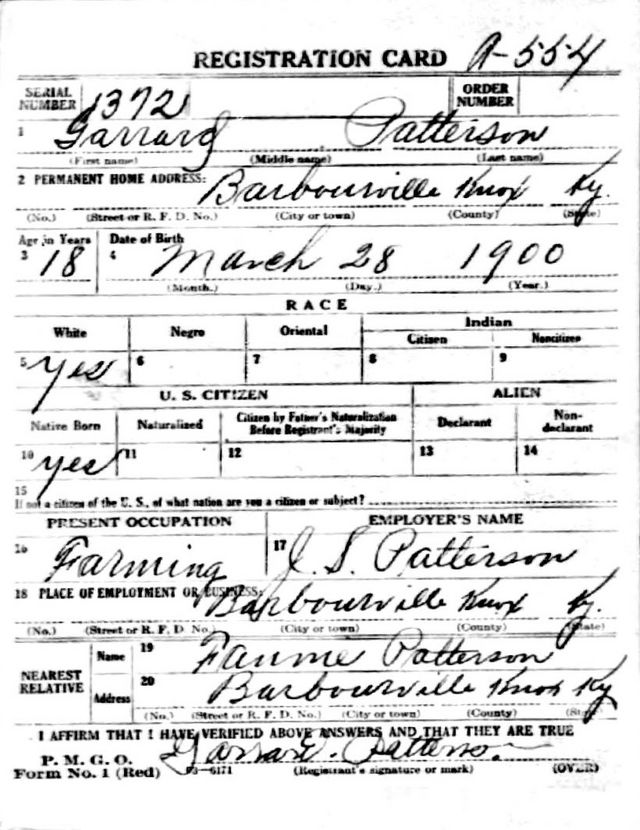 REGISTRATION CARD A-554
SERIAL NUMBER 1372 ORDER NUMBER
1 Garrard Patterson
(First name) (Middle name) (Last name)
2 PERMANENT HOME ADDRESS: Barbourville Knox Ky.
(No.) (Street or R. F. D. No.) (City or town) (County) (State)
Age in Years Date of Birth
3 18 4 March 28 1900
(Month.) (Day.) (Year.)
RACE
White Negro Oriental Indian
Citizen Noncitizen
5 Yes 6 7 8 9
U. S. CITIZEN ALIEN
Native Born Naturalized Citizen by Father's Naturalization Before Registrant's Majority Declarant Non-declarant
10 Yes 11 12 13 14
15
If not a citizen of the U. S., of what nation are you a citizen or subject?
PRESENT OCCUPATION EMPLOYER'S NAME
16 Farming 17 J. S. Patterson
18 PLACE OF EMPLOYMENT OR BUSINESS: Barbourville Knox Ky.
(No.) (Street or R. F. D. No.) (City or town) (County) (State)
NEAREST RELATIVE Name 19 Fannie Patterson
Address 20 Barbourville Knox Ky
(No.) (Street or R. F. D. No.) (City or town) (County) (State)
I AFFIRM THAT I HAVE VERIFIED ABOVE ANSWERS AND THAT THEY ARE TRUE
P. M. G. O.
Form No. 1 (Red) 03-6171 Garrard Patterson
(Registrant's signature or mark) (OVER)